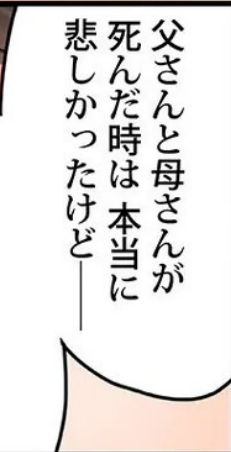 父さんと母さんが
死んだ時は 本当に
悲しかったけど――